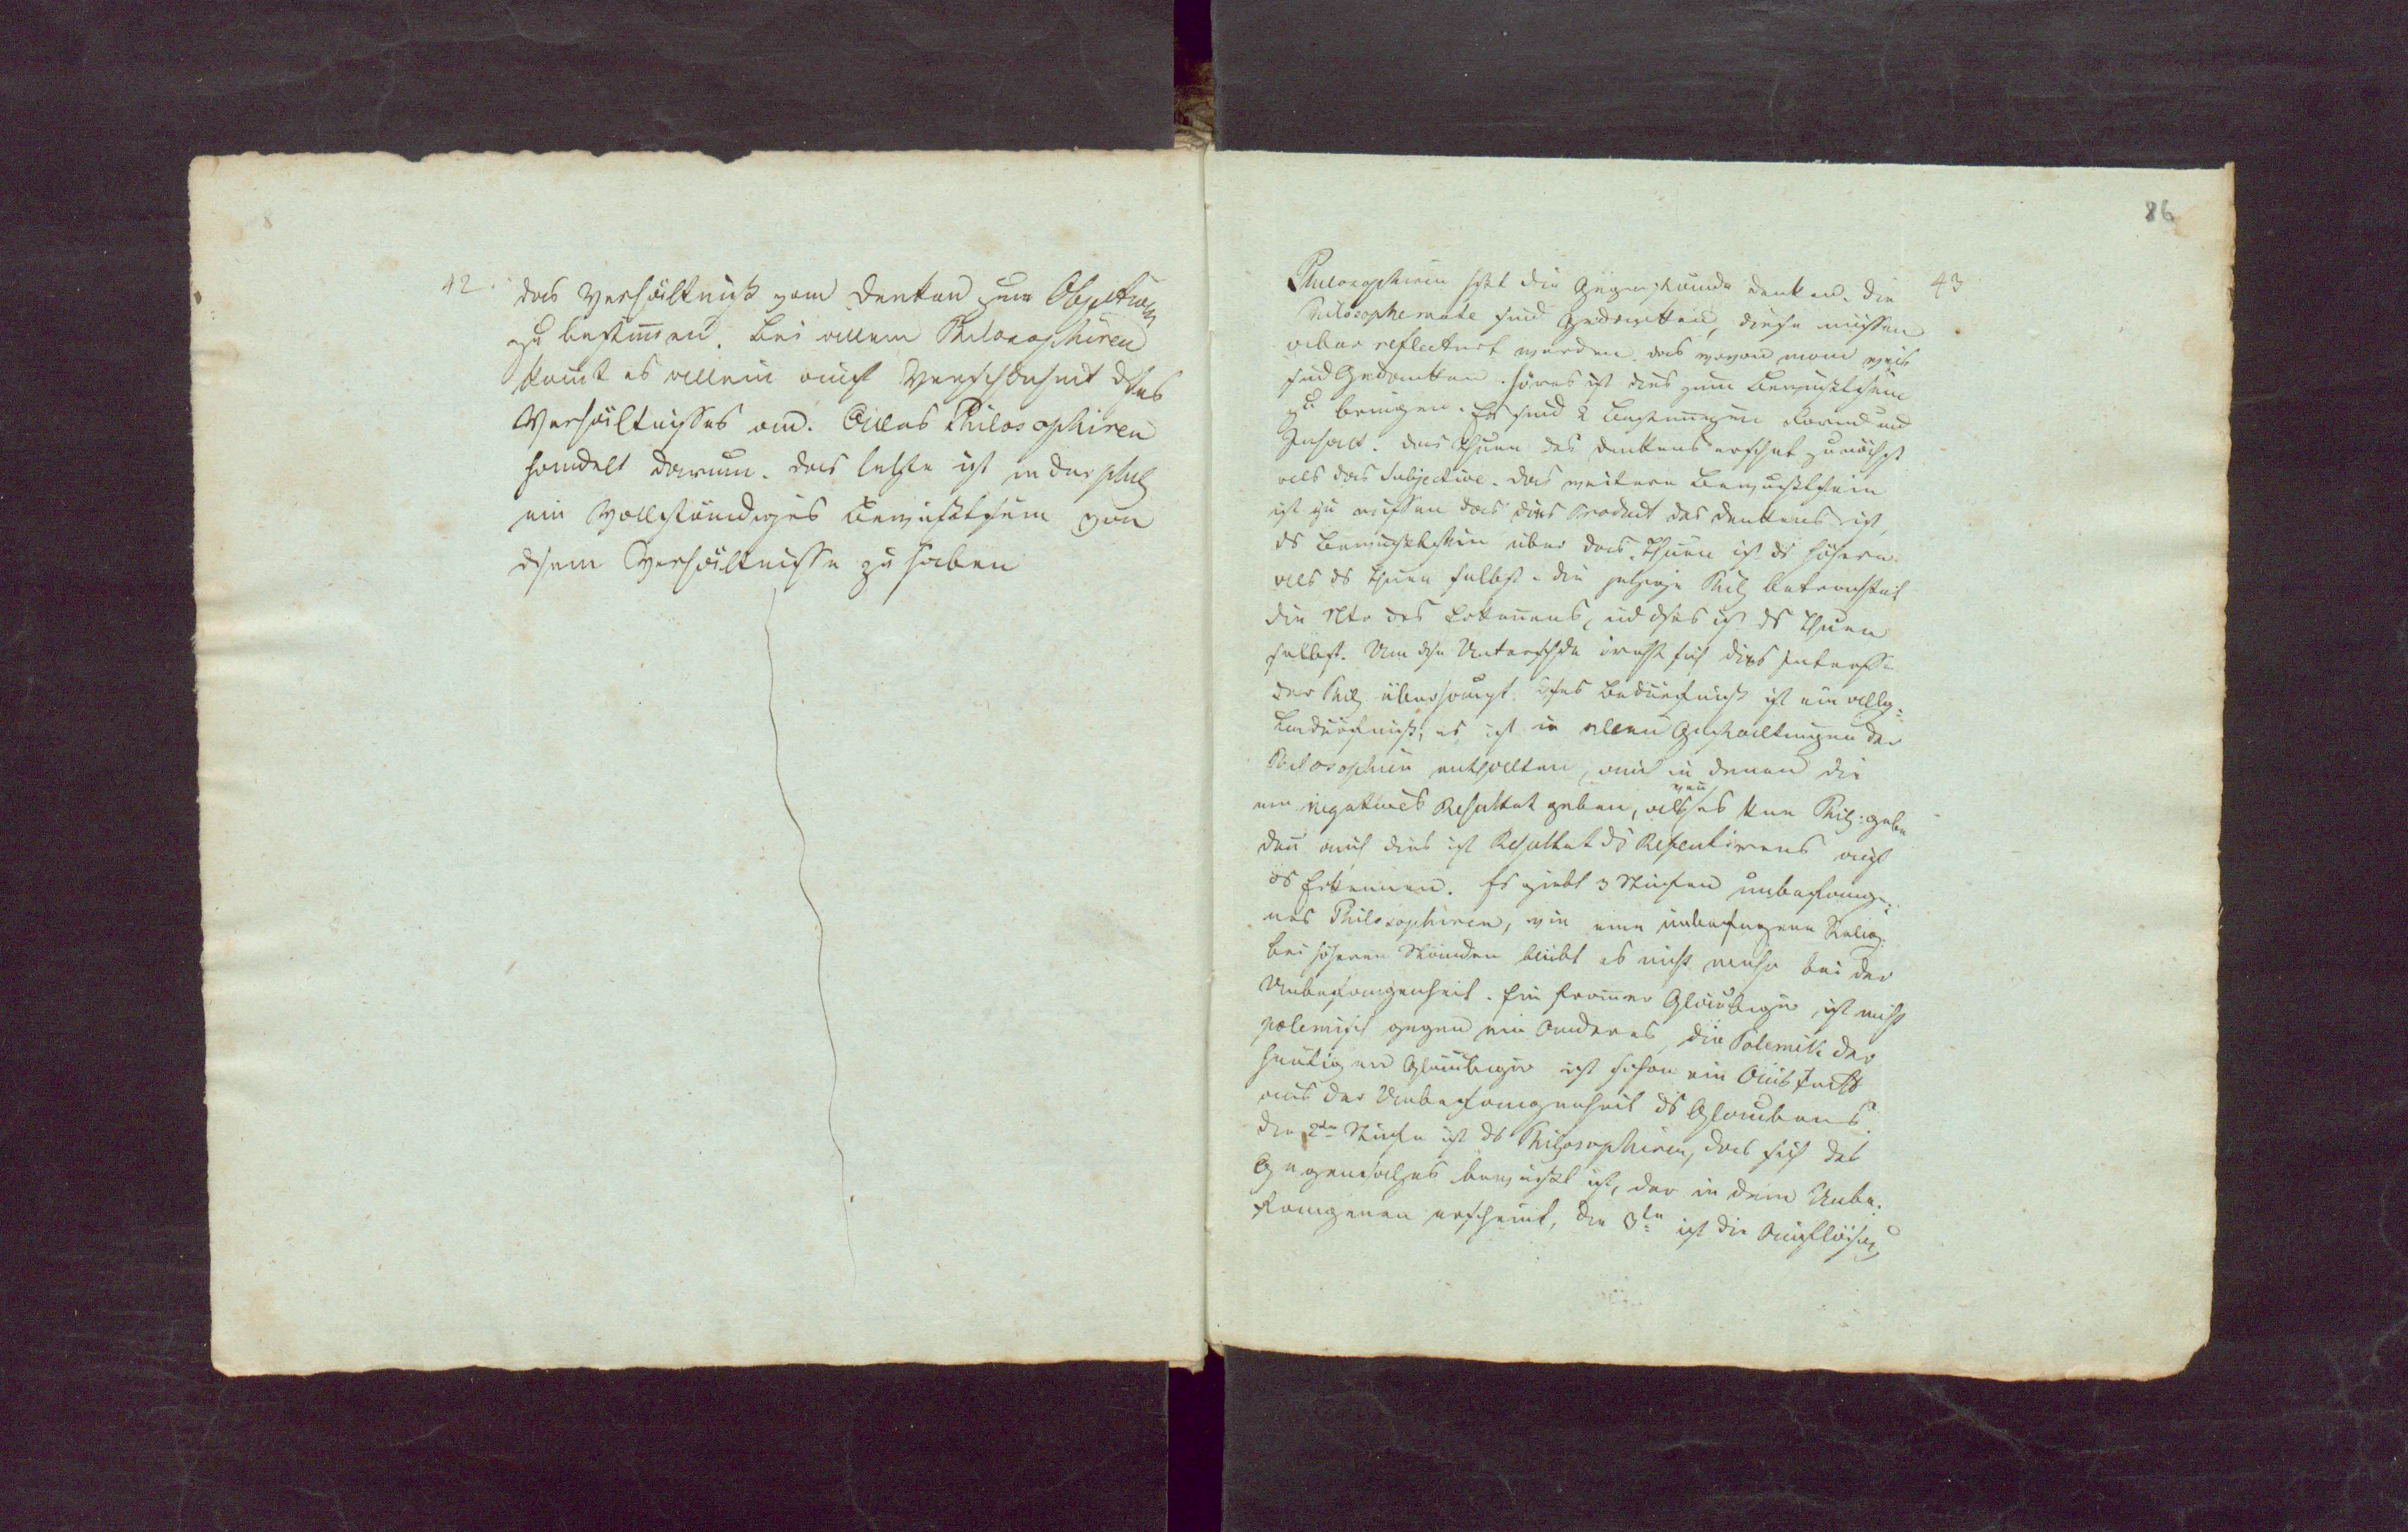 42.
das Verhältniß vom Denken zum Objectiven
zu bestimmen. Bei allem Philosophiren
komt es allein auf Verschiedenheit dses
Verhältnisses an. Alles Philosophiren
handelt darum. Das letzte ist in der phil
ein vollständiges Bewußtsein von
dsem Verhältnisse zu haben
86
43
Philosophiren heißt die Gegenstände denken. Die
Philosophemate sind Gedanken, diese müssen
aber reflectirt werden. das wovon man weis
sind Gedanken. Höres ist dies zum Bewußtsein
zu bringen. Es sind 2 Bestimungen Form und
Inhalt. Das Thuen des Denkens erscheint zunächst
als das Subjective. Das weitere Bewußtsein
ist zu wissen das dies Product des Denkens ist,
ds Bewußtsein über das Thuen ist ds höhere
als ds Thuen selbst. die jetzige Phil betrachtet
die Ntr des Erkennens, und dses ist ds Thuen
selbst. Um dsn Unterschied dreht sich dies Interesse
der Phil überhaupt. Dses Bedürfniß ist ein allg=
Bedürfniß, es ist in allen Gestaltungen der
Philosophie enthalten, auch in denen die
ein negatives Resultat geben, als es keine Phil. gebe
den auch dies ist Resultat ds Reflectirens auf
ds Erkennen. Es giebt 3 Stufen unbefange=
nes Philosophiren, wie eine unbefangene Relig.
bei höheren Ständen bleibt es nicht mehr bei der
Unbefangenheit. Ein fromer Gläubiger ist nicht
polemisch gegen ein Anderes, die Polemik der
heutigen Gläubigen ist schon ein Austritt
aus der Unbefangenheit ds Glaubens.
Die 2te Stufe ist ds Philosophiren, das sich des
Gegensatzes bewußt ist, der in dem Unbe=
fangenen erscheint, die 3te ist die Auflösung